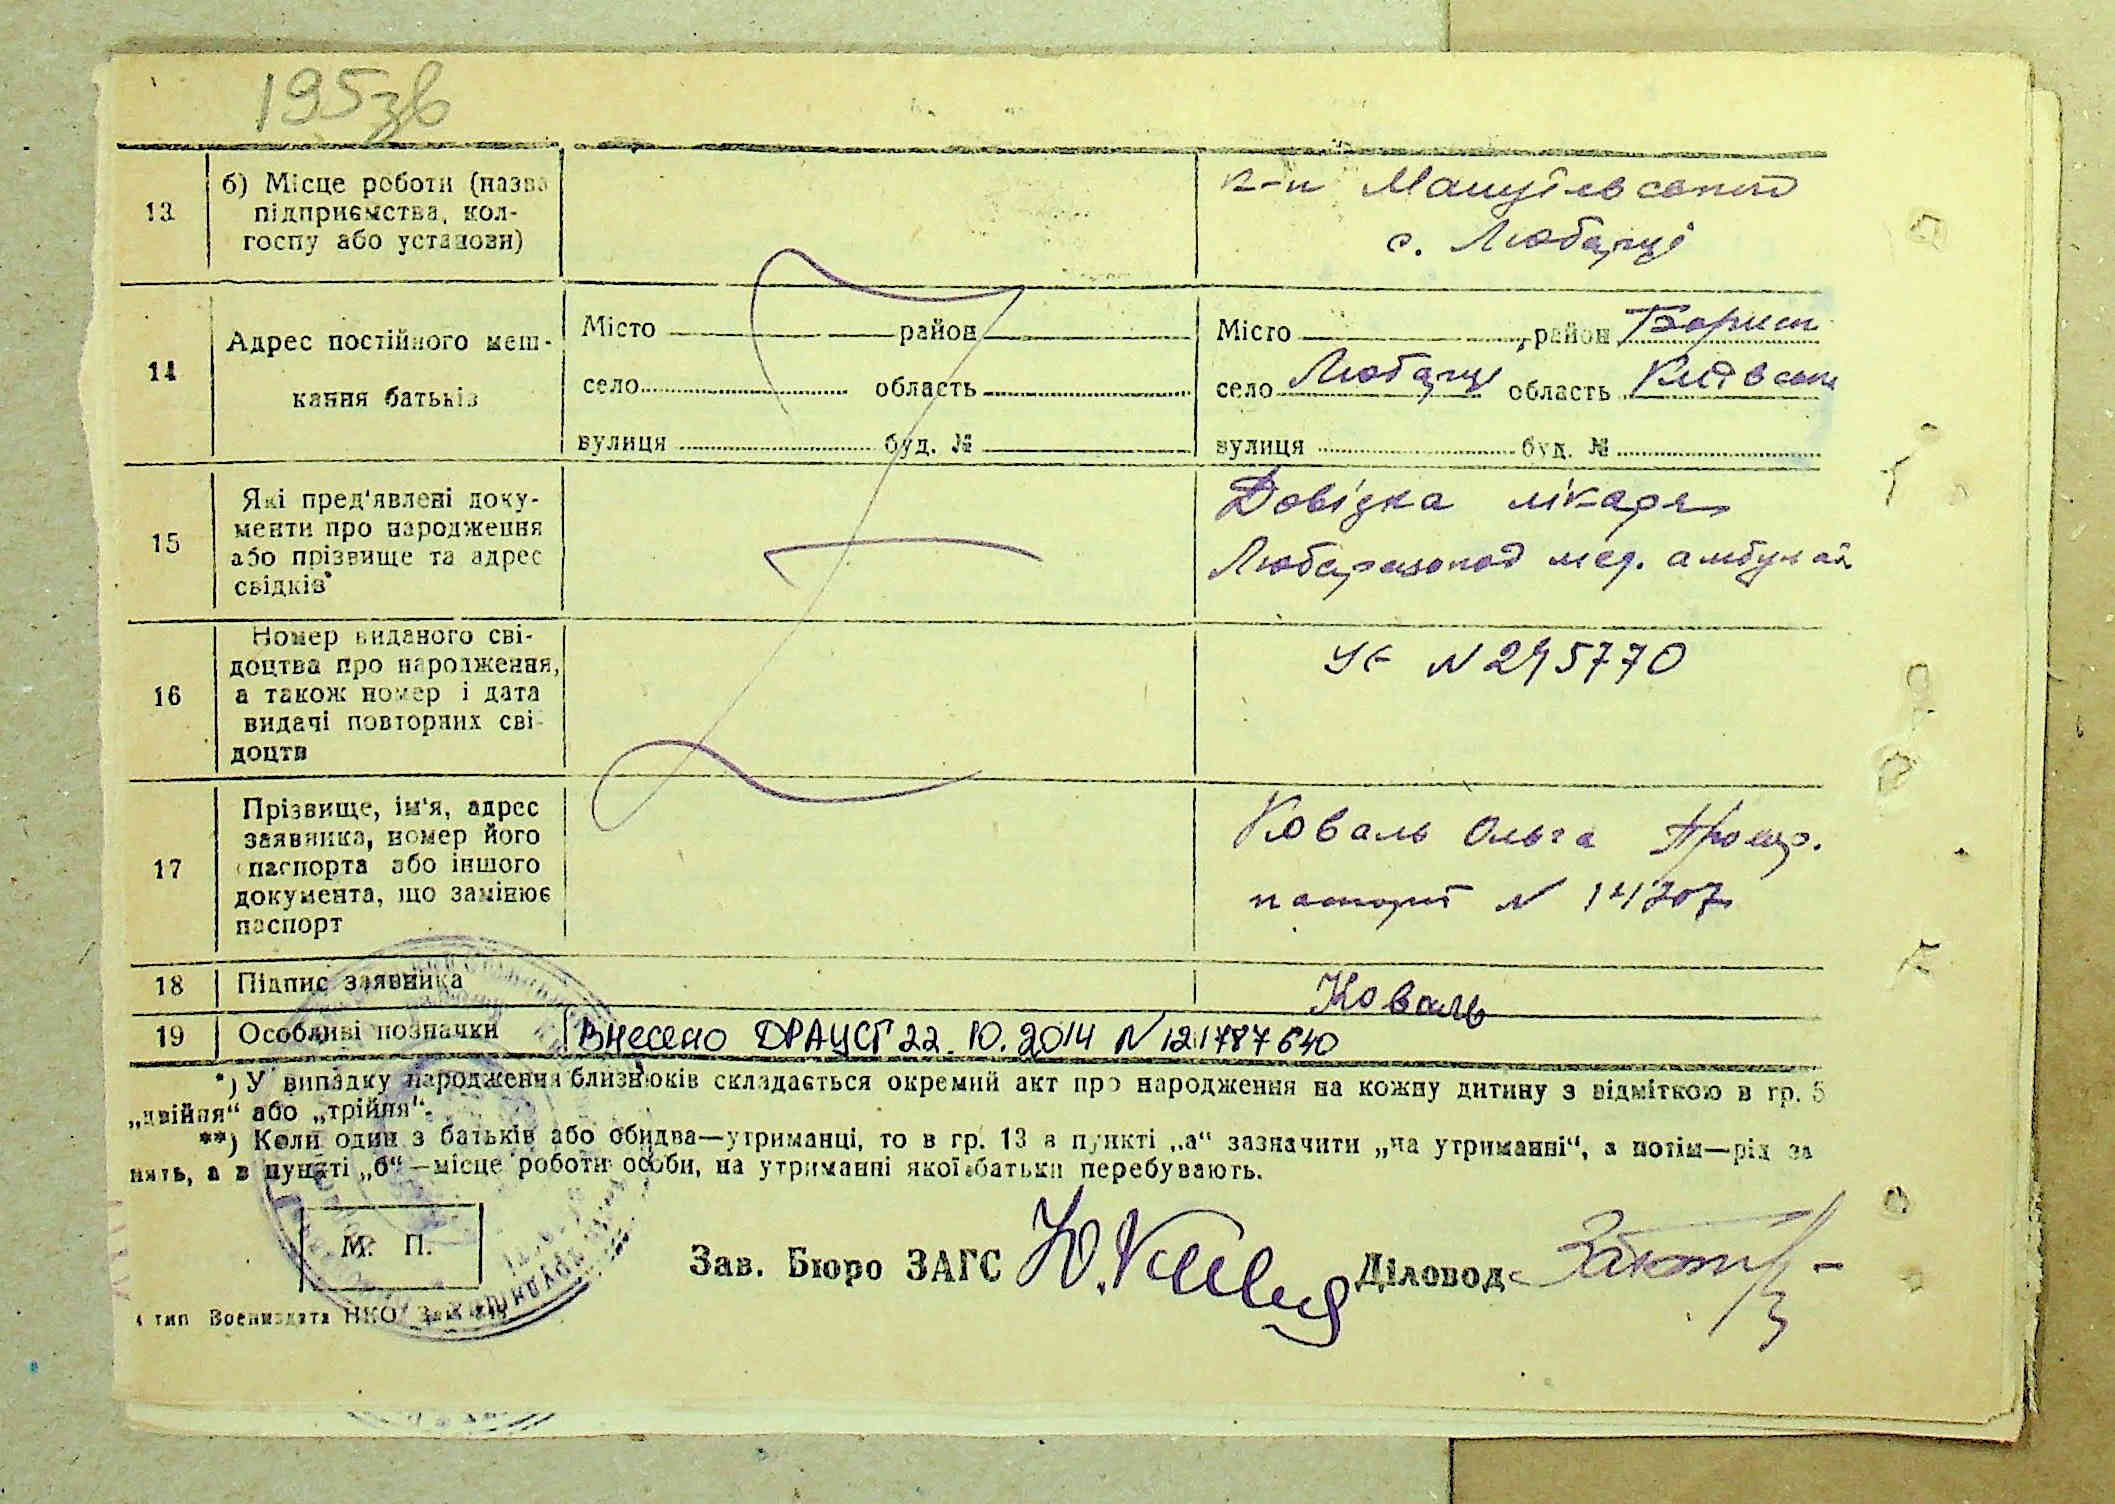 195зв
13
б) Місце роботи (назва
підприємства, кол-
госпу або установи)
с. Любарці
14
Адрес постійного меш-
кання батьків
Місто район
село область
вулиця буд. №
Місто , район Борисп
село Любарці область Київськ
вулиця буд. №
15
Які пред'явлені доку-
менти про народження
або прізвище та адрес
свідків
Довідка лікаря
мед. амбулат
16
Номер виданого сві-
доцтва про народження,
а також номер і дата
видачі повторних сві-
доцтв
N 295770
17
Прізвище, ім'я, адрес
заявника, номер його
паспорта або іншого
документа, що замінює
паспорт
Коваль Ольга
паспорт N
18 Підпис заявника
Коваль
19 Особливі позначки Внесено ДРАЦСГ 22.10.2014 N 121787640
*) У випадку народження близнюків складається окремий акт про народження на кожну дитину з відміткою в гр. 5
„двійня“ або „трійня“.
**) Коли один з батьків або обидва—утриманці, то в гр. 13 в пункті „а“ зазначити „на утриманні“, а потім—рід за
нять, а в пункті „б“—місце роботи особи, на утриманні якої батьки перебувають.
М. П.
Зав. Бюро ЗАГС
Діловод
4 тип Воениздата НКО Зак